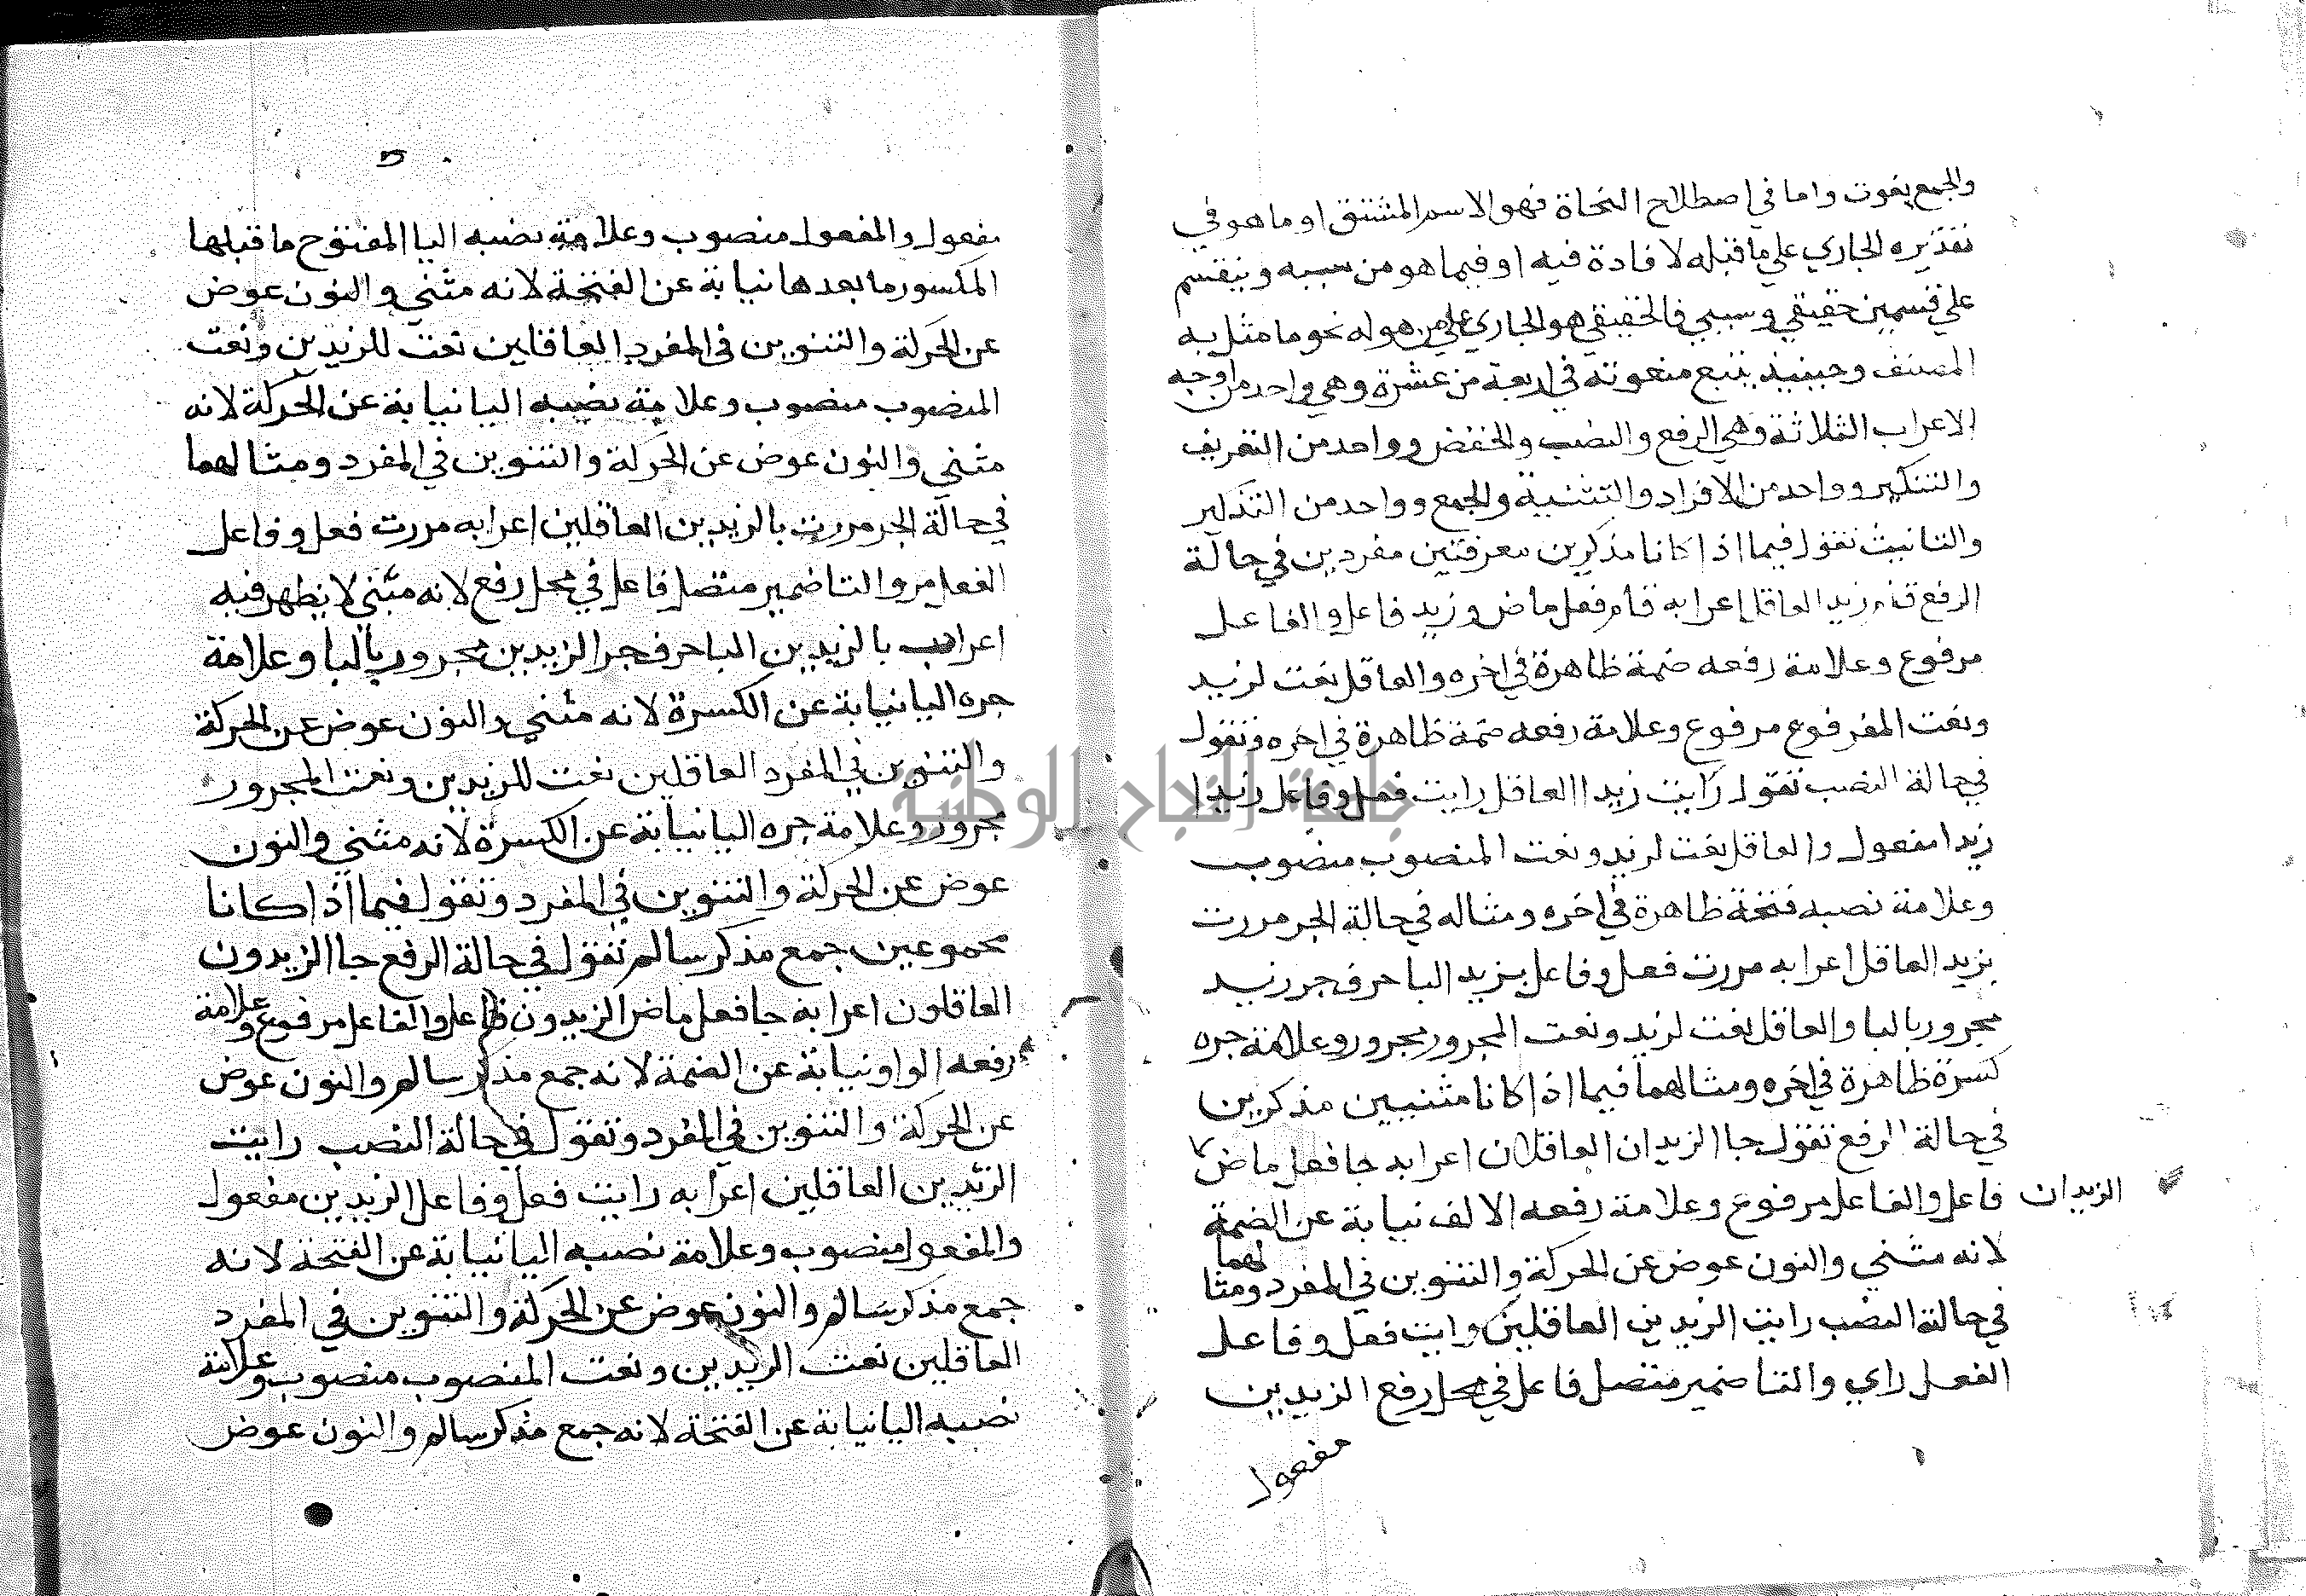 والجمع يفوت واما في اصطلاح النحاة فهو الاسم المشتق او ما هو في
تقديره الجاري علي ما قبله لافادة فيه او فيما هو من سببه وينقسم
علي قسمين حقيقي وسببي فالحقيقي هو الجاري علي من هو له نحو ما مثل به
المصنف وحينيذ يتبع منعوته في اربعة من عشرة وهي واحد من اوجه
الاعراب الثلاثة وهي الرفع والنصب والخفض وواحد من التعريف
والتنكير وواحد من الافراد والتثنية والجمع وواحد من التذكير
والتانيث تقول فيما اذا كانا مذكرين معرفتين مفردين في حالة
الرفع قام زيد العاقل اعرابه قام فعل ماض وزيد فاعل والفاعل
مرفوع وعلامة رفعه ضمة ظاهرة في اخره والعاقل نعت لزيد
ونعت المفرفوع مرفوع وعلامة رفعه ضمة ظاهرة في اخره وتقول
في حالة النصب تقول رايت زيدا العاقل رايت فعل وفاعل زيدا
زيدا مفعول والعاقل نعت لزيد ونعت المنصوب منصوب
وعلامة نصبه فتحة ظاهرة في اخره ومثاله في حالة الجر مررت
بزيد العاقل اعرابه مررت فعل وفاعل بزيد البا حرف جر زيد
مجرور بالبا والعاقل نعت لزيد ونعت المجرور مجرور وعلامة جره
كسرة ظاهرة في اخره ومثالهما فيما اذا كانا مثنيين مذكرين
في حالة الرفع تقول جا الزيدان العاقلان اعرابه جا فعل ماض
الزيدان فاعل والفاعل مرفوع وعلامة رفعه الالف نيابة عن الضمة
لانه مثني والنون عوض عن الحركة والتنوين في المفرد ومثالهما
في حالة النصب رايت الزيدين العاقلين رايت فعل وفاعل
الفعل راي والتا ضمير متصل فاعل في محل رفع الزيدين
مفعول
مفعول والمفعول منصوب وعلامة نصبه اليا المفتوح ما قبلها
المكسور ما بعدها نيابة عن الفتحة لانه مثني والنون عوض
عن الحركة والتنوين في المفرد العاقلين نعت للزيدين ونعت
المنصوب منصوب وعلامة نصبه اليا نيابة عن الحركة لانه
مثني والنون عوض عن الحركة والتنوين في المفرد ومثالهما
في حالة الجر مررت بالزيدين العاقلين اعرابه مررت فعل وفاعل
الفعل مر والتا ضمير متصل فاعل في محل رفع لانه مبني لا يظهر فيه
اعراب بالزيدين البا حرف جر الزيدين مجرور بالبا وعلامة
جره اليا نيابة عن الكسرة لانه مثني والنون عوض عن الحركة
والتنوين في المفرد العاقلين نعت للزيدين ونعت المجرور
مجرور وعلامة جره اليا نيابة عن الكسرة لانه مثني والنون
عوض عن الحركة والتنوين في المفرد وتقول فيما اذا كانا
مجموعين جمع مذكر سالم تقول في حالة الرفع جا الزيدون
العاقلون اعرابه جا فعل ماض الزيدون فاعل والفاعل مرفوع وعلامة
رفعه الواو نيابة عن الضمة لانه جمع مذكر سالم والنون عوض
عن الحركة والتنوين في المفرد وتقول في حالة النصب رايت
الزيدين العاقلين اعرابه رايت فعل وفاعل الزيدين مفعول
والمفعول منصوب وعلامة نصبه اليا نيابة عن الفتحة لانه
جمع مذكر سالم والنون عوض عن الحركة والتنوين في المفرد
العاقلين نعت الزيدين ونعت المنصوب منصوب وعلامة
نصبه اليا نيابة عن الفتحة لانه جمع مذكر سالم والنون عوض
جامعة النجاح الوطنية